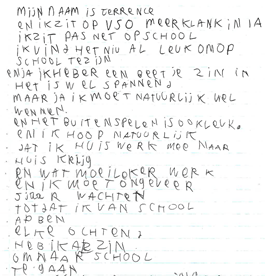 MIJN NAAM IS TERRENCE
EN IK ZIT OP VSO MEERKLANK IN 1A
IK ZIT PAS NET OP SCHOOL
IK VIND HET NU AL LEUK OM OP
SCHOOL TE ZIJN
EN JA IK HEB ER EEN BEETJE ZIN IN
HET IS WEL SPANNEND
MAAR JA IK MOET NATUURLIJK WEL
WENNEN.
EN HET BUITEN SPELEN IS OOK LEUK.
EN IK HOOP NATUURLIJK
DAT IK HUIS WERK MEE NAAR
HUIS KRIJG
EN WAT MOEILOKER WERK
EN IK MOET ONGEVEER
5 JAAR WACHTEN
TOTDAT IK VAN SCHOOL
AF BEN
ELKE OCHTEND
HEB IK ZIN
OM NAAR SCHOOL
TE GAAN